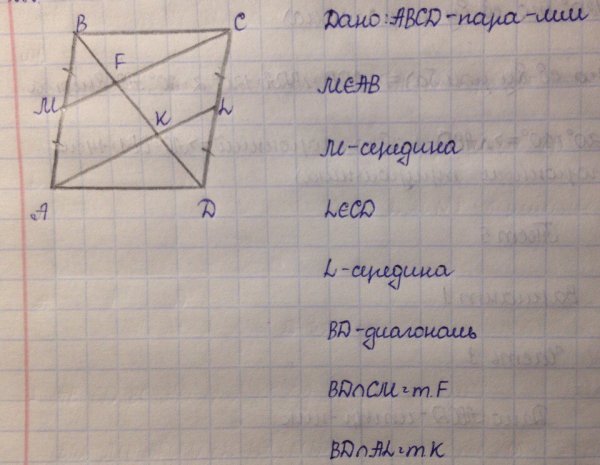 B C
F
M L
K
A D
Дано: ABCD-пара-мм
M∈AB
M-середина
L∈CD
L-середина
BD-диагональ
BD∩CM=т.F
BD∩AL=т.K